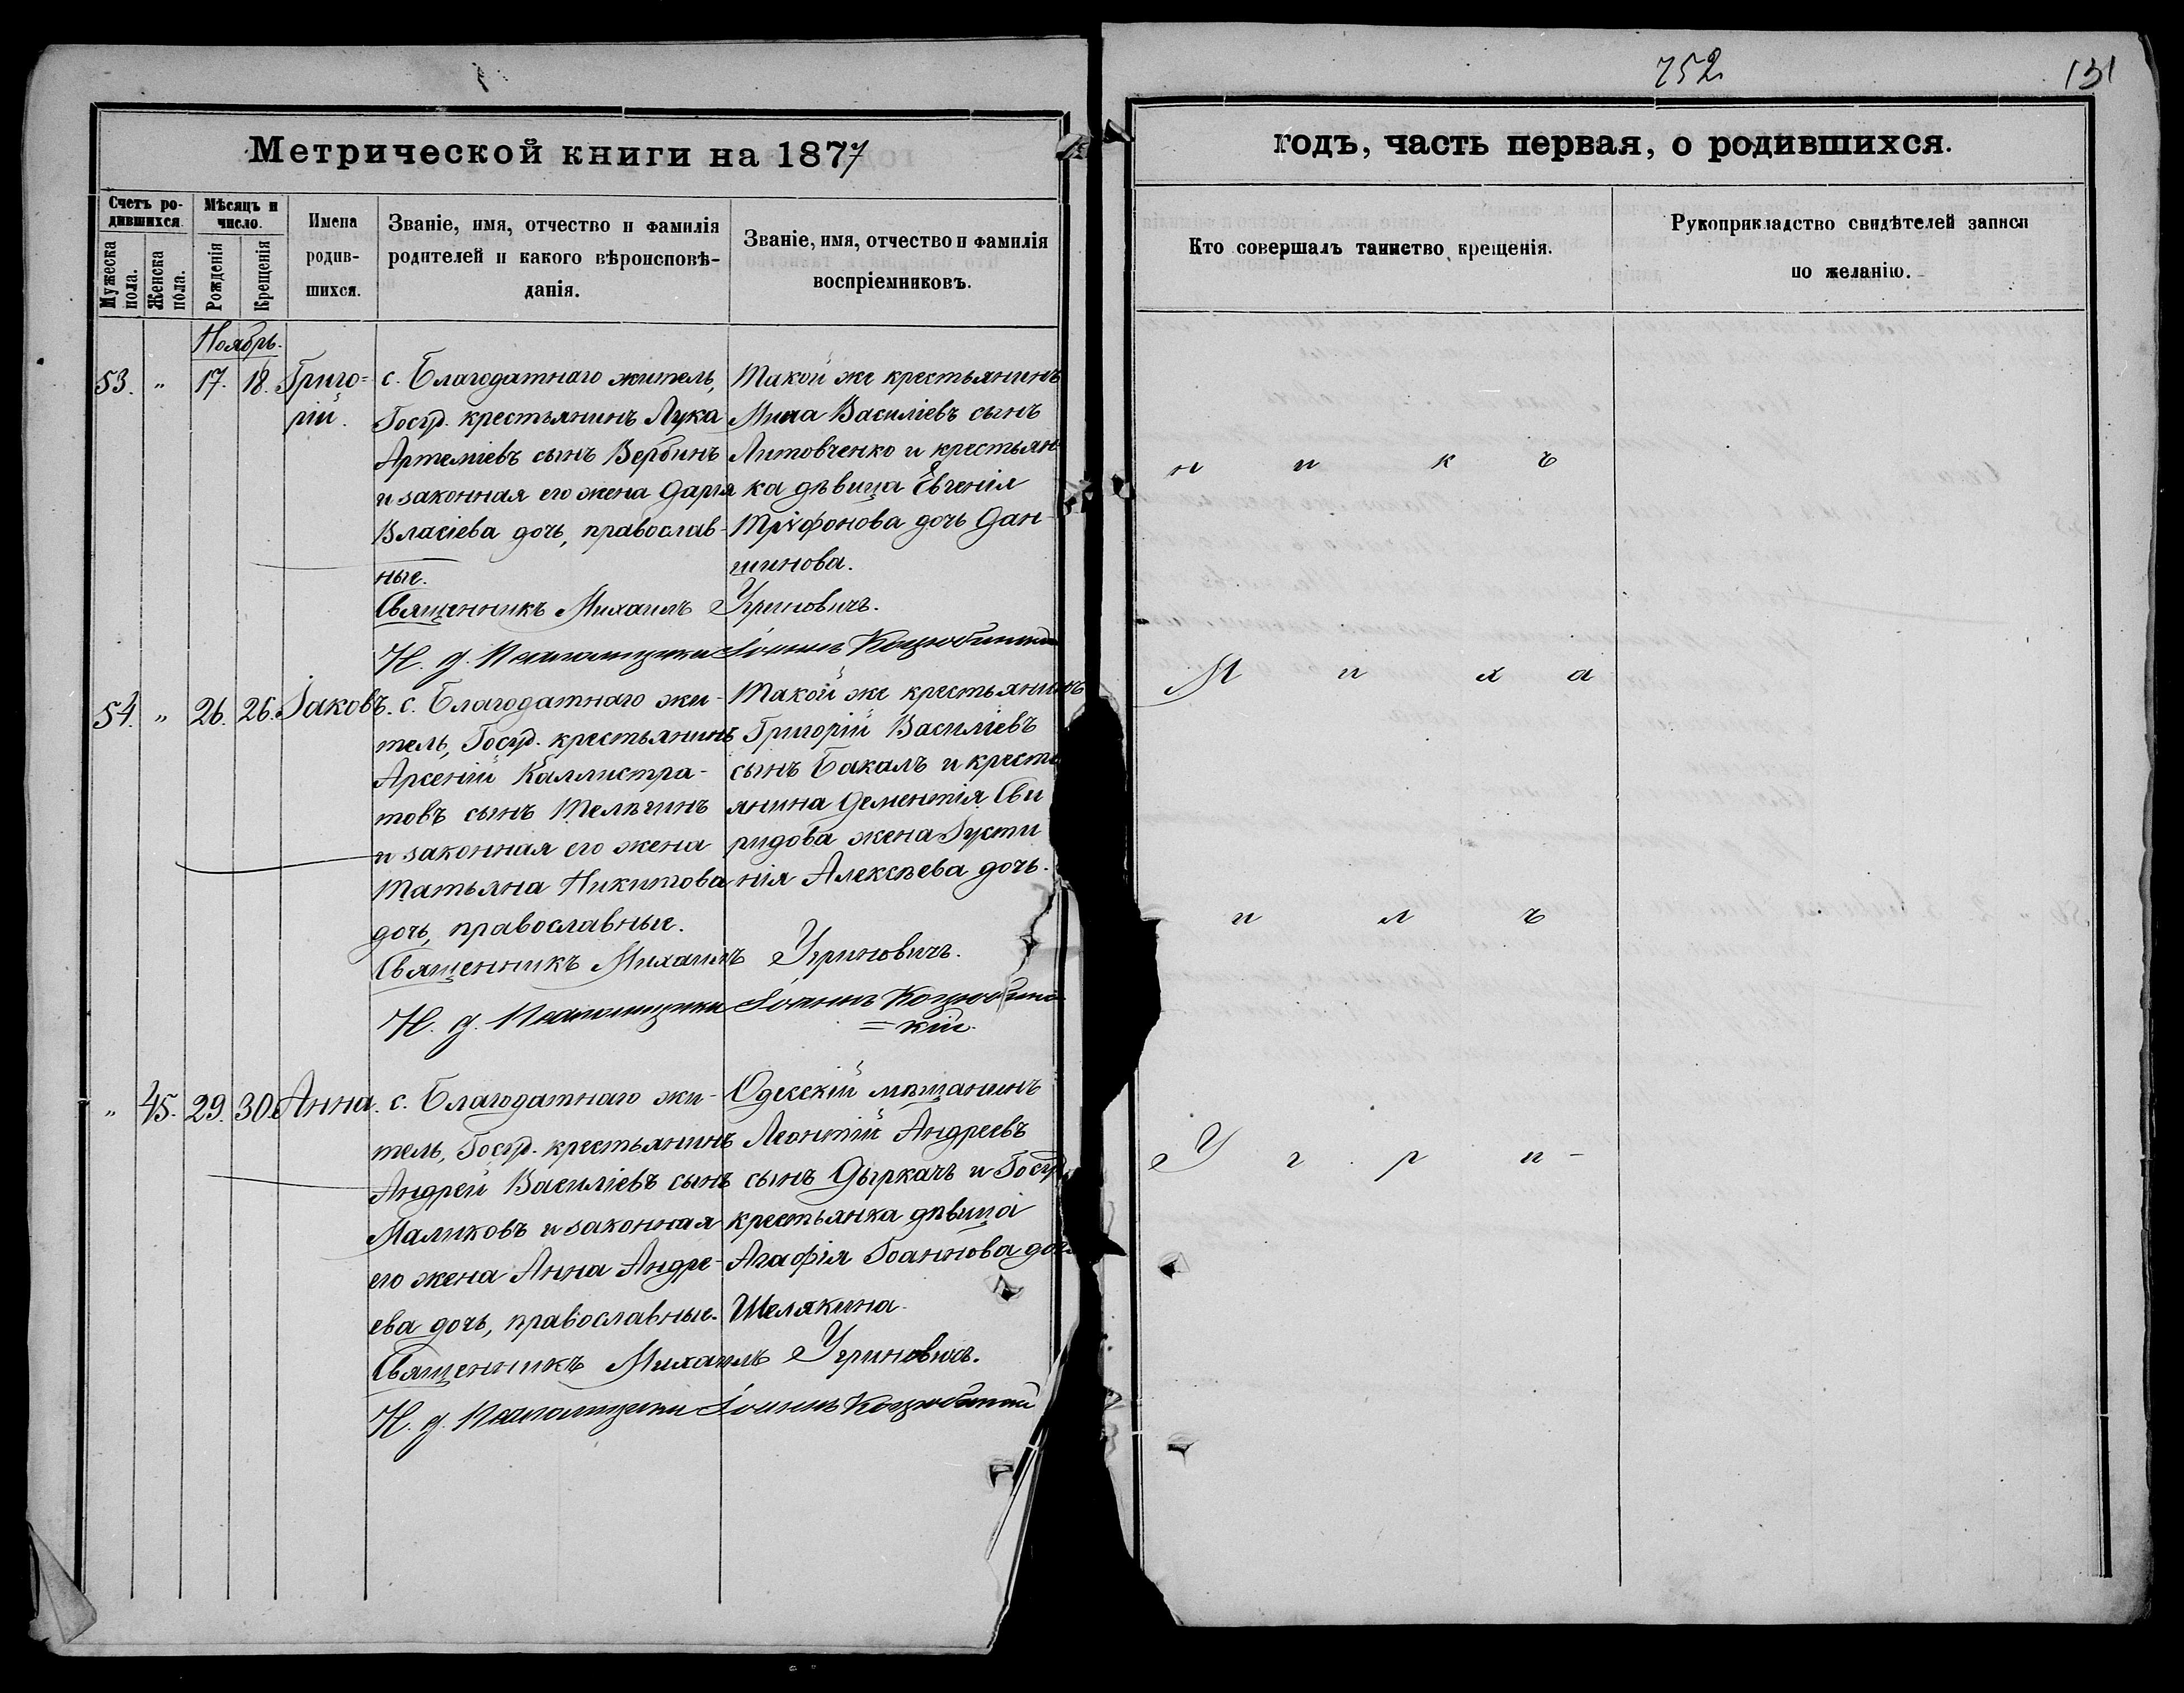 752
131
Метрической книги на 1877
годъ, часть первая, о родившихся.
Счетъ ро-
дившихся.
Мужеска пола.
Женска пола.
Мѣсяцъ и
число.
Рожденія
Крещенія
Имена
родив-
шихся.
Званіе, имя, отчество и фамилія
родителей и какого вѣроисповѣ-
данія.
Званіе, имя, отчество и фамилія
воспріемниковъ.
Кто совершалъ таинство крещенія.
Рукоприкладство свидѣтелей записи
по желанію.
Ноябрь.
53. " 17. 18. Григо=
рій.
с. Благодатнаго житель,
Госуд. крестьянинъ Лука
Артеміевъ сынъ Вербинъ
и законная его жена Дарія
Власіева дочь, православ-
ные.
Такой же крестьянинъ
Мина Василіевъ сынъ
Литовченко и крестьян-
ка дѣвица Евгенія
Тріфонова дочь Дан-
шинова.
Священникъ Михаилъ Угриновичъ.
И. д. Псаломщика Іоаннъ Коцюбинскій
54. " 26. 26. Іаковъ.
с. Благодатнаго жи-
тель, Госуд. крестьянинъ
Арсеній Каллистра-
товъ сынъ Телѣгинъ
и законная его жена
Татьяна Никитова
дочь, православные.
Такой же крестьянинъ
Григорій Василіевъ
сынъ Бакалъ и кресть
янина Дементія Сви
ридова жена Іусти
нія Алексѣева дочь.
Священникъ Михаилъ Угриновичъ.
И. д. Псаломщика Іоаннъ Коцюбинс
=кій.
" 45. 29. 30. Анна.
с. Благодатнаго жи-
тель, Госуд. крестьянинъ
Андрей Василіевъ сынъ
Маликовъ и законная
его жена Анна Андре-
ева дочь, православные.
Одесскій мѣщанинъ
Леонтій Андреевъ
сынъ Дыркачъ и Госуд.
крестьянка дѣвица
Агафія Іоаннова дочь
Шелякина.
Священникъ Михаилъ Угриновичъ.
И. д. Псаломщика Іоаннъ Коцюбинскій
н и к ъ
М и х а
и л ъ
У г р и -